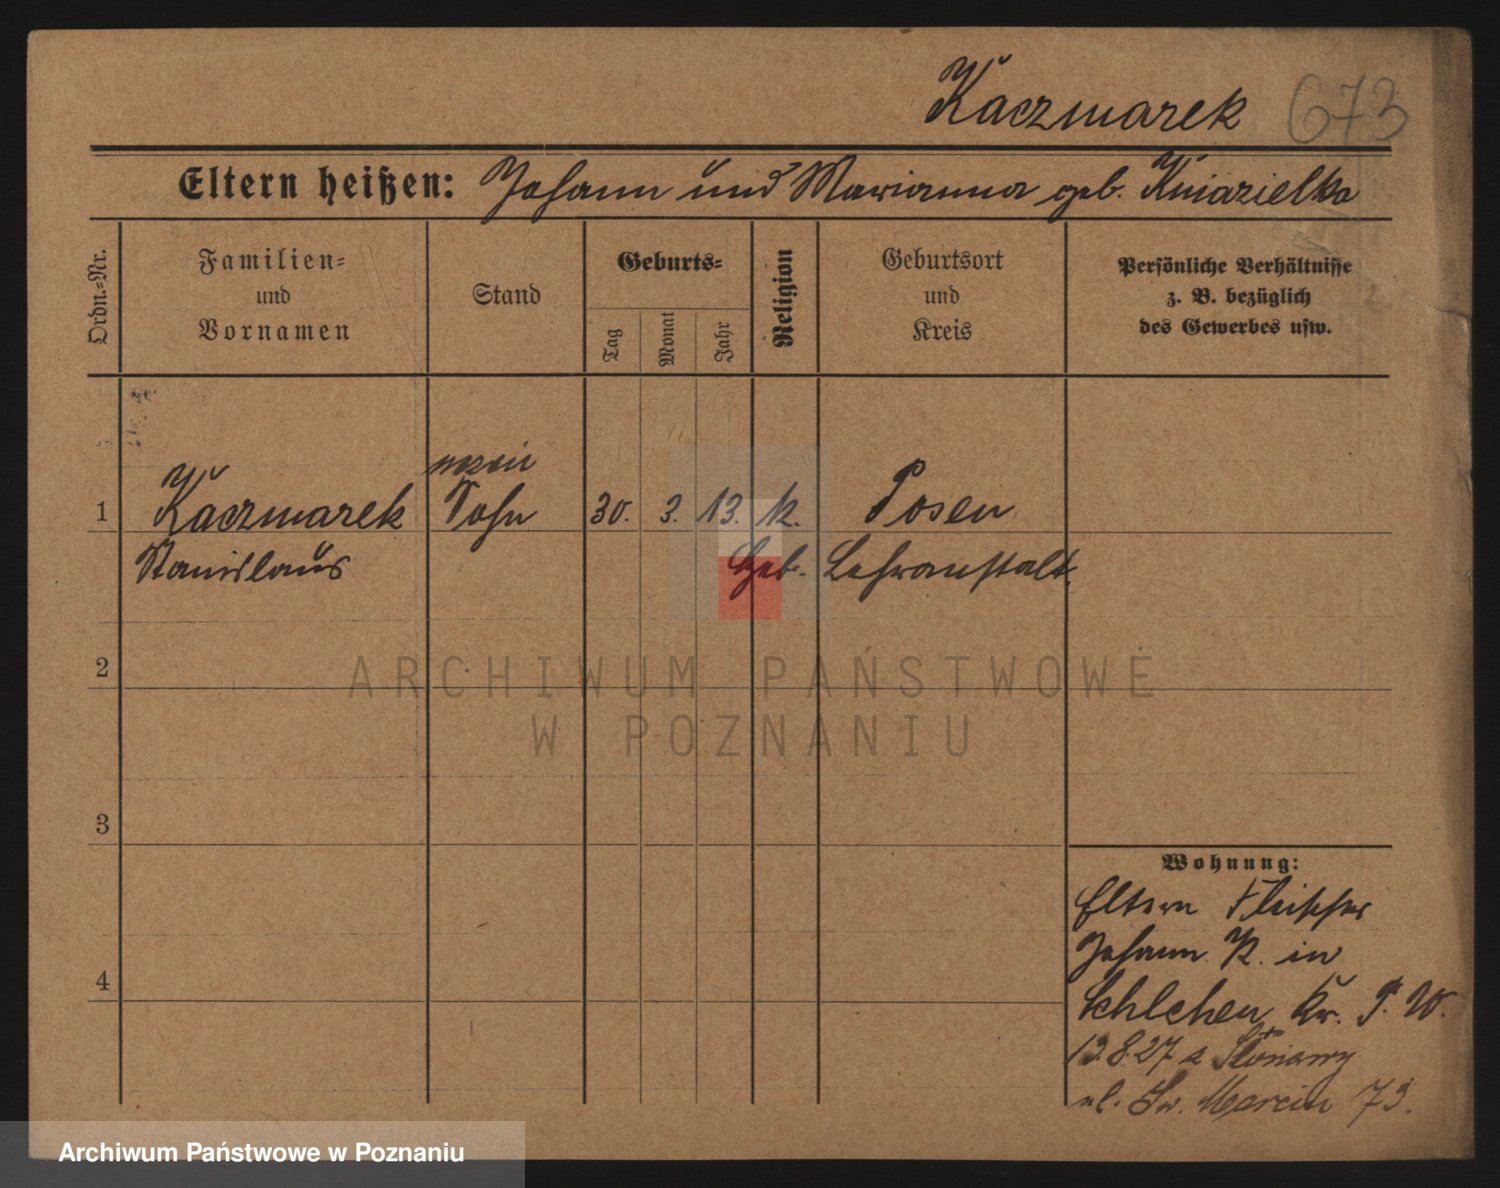 Kaczmarek 673
Eltern heißen: Johann und Marianna geb. Kniazielka
Ordn.-Nr.
Familien-
und
Vornamen
Stand
Geburts-
Tag
Monat
Jahr
Religion
Geburtsort
und
Kreis
Persönliche Verhältnisse
z. B. bezüglich
des Gewerbes usw.
1 Kaczmarek Sohn 30. 3. 13. k. Posen
Stanislaus Geb. Lehranstalt.
2
3
4
Wohnung:
Eltern Fleischer
Johann K. in
Schlehen Kr. P. W.
13.8.27 z
ul. Św. Marcin 73.
ARCHIWUM PAŃSTWOWE
W POZNANIU
Archiwum Państwowe w Poznaniu